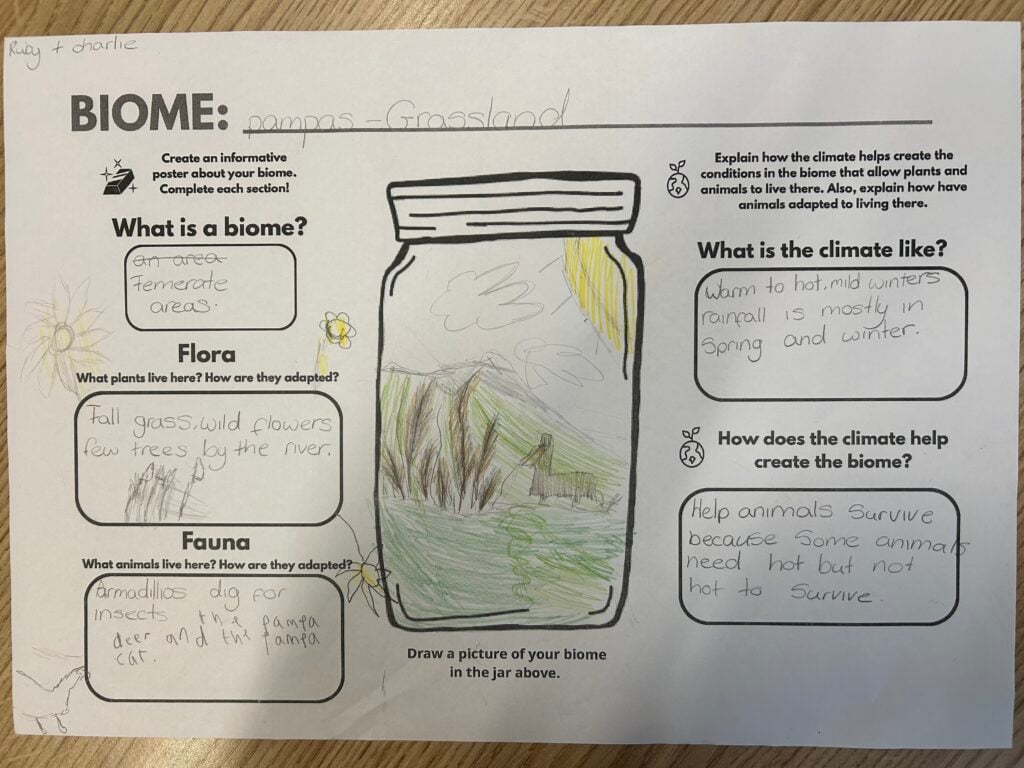 Ruby + charlie
BIOME: pampas - Grassland
Create an informative
poster about your biome.
Complete each section!
What is a biome?
an area
Temerate
areas.
Flora
What plants live here? How are they adapted?
Tall grass, wild flowers
few trees by the river.
Fauna
What animals live here? How are they adapted?
Armadillios dig for
insects the pampa
deer and the pampa
cat.
Draw a picture of your biome
in the jar above.
Explain how the climate helps create the
conditions in the biome that allow plants and
animals to live there. Also, explain how have
animals adapted to living there.
What is the climate like?
Warm to hot, mild winters
rainfall is mostly in
Spring and winter.
How does the climate help
create the biome?
Help animals Survive
because Some animals
need hot but not
hot to Survive.